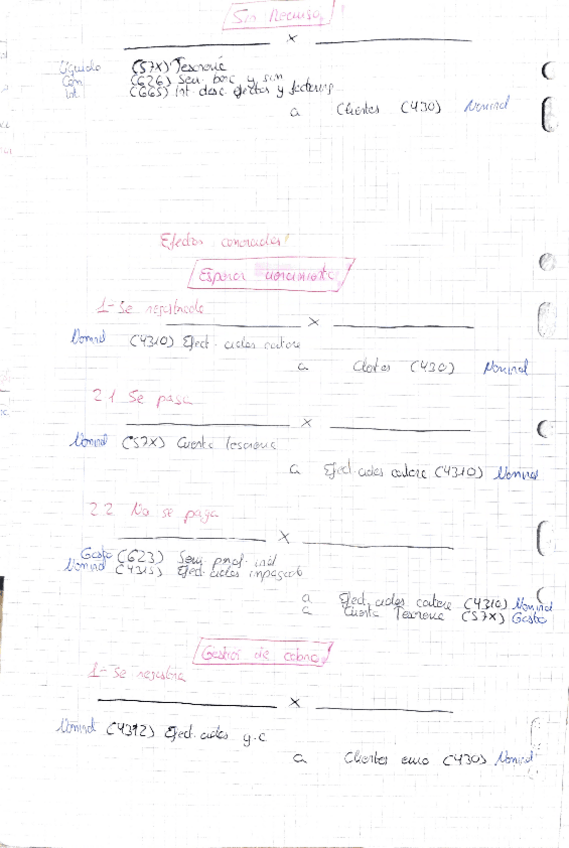 Sin Recurso
x
Líquido (57X) Tesorería
Com (626) Serv. banc y sim
int (665) Int. desc. efectos y factoring
a Clientes (430) Nominal
Efectos comerciales
Esperar vencimiento
1- Se registrado
x
Nominal (4310) Efect. ciales cartera
a Clientes (430) Nominal
2.1 Se paga
x
Nominal (57X) Cuenta Tesorería
a Efect ciales cartera (4310) Nominal
2.2 No se paga
x
Gasto (623) Serv. prof. ind
Nominal (4315) Efect. ciales impagados
a Efect ciales cartera (4310) Nominal
a Cuenta Tesorería (57X) Gasto
Gestión de cobro
1- Se registra
x
Nominal (4312) Efect. ciales g.c
a Clientes (430) Nominal